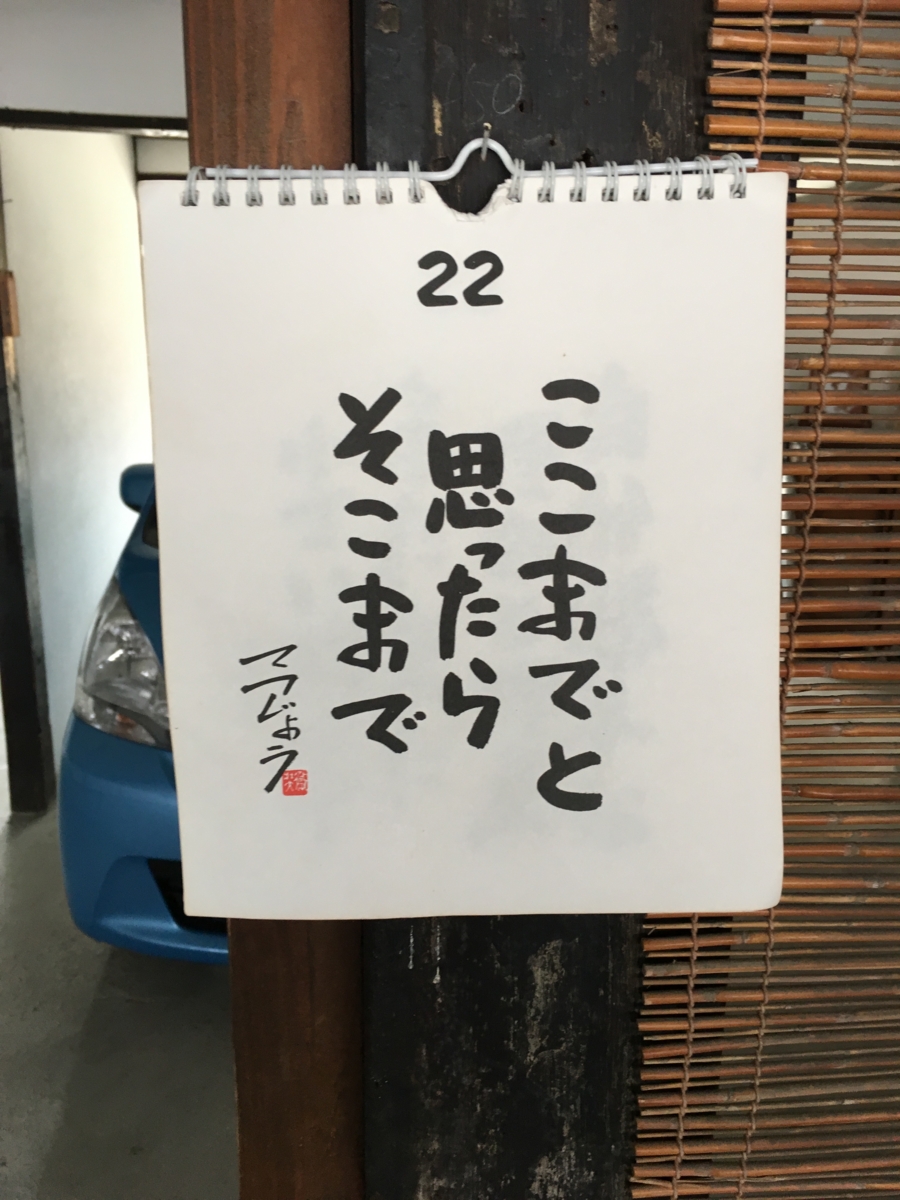 22
ここまでと
思ったら
そこまで
マツじょう